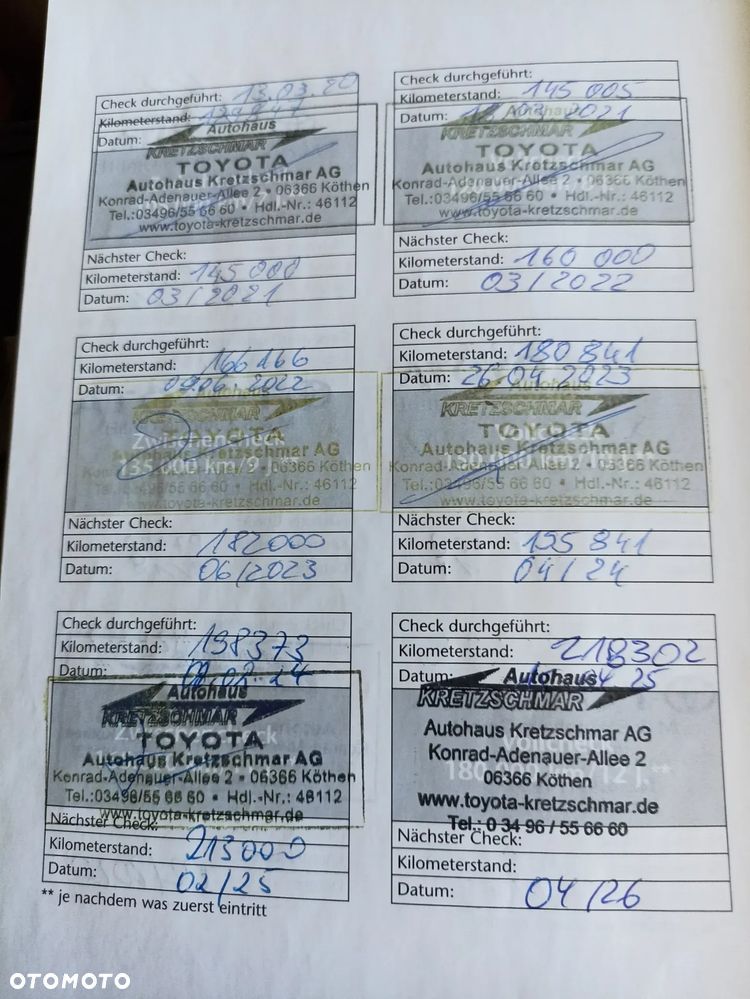 Check durchgeführt: 13.03.20
Kilometerstand:
Datum:
Autohaus
KRETZSCHMAR
TOYOTA
Autohaus Kretzschmar AG
Konrad-Adenauer-Allee 2 • 06366 Köthen
Tel.:03496/55 66 60 • Hdl.-Nr.: 46112
www.toyota-kretzschmar.de
Nächster Check:
Kilometerstand: 145 000
Datum: 03/2021
Check durchgeführt:
Kilometerstand: 145 005
Datum: 2021
Autohaus
KRETZSCHMAR
TOYOTA
Autohaus Kretzschmar AG
Konrad-Adenauer-Allee 2 • 06366 Köthen
Tel.:03496/55 66 60 • Hdl.-Nr.: 46112
www.toyota-kretzschmar.de
Nächster Check:
Kilometerstand: 160 000
Datum: 03/2022
Check durchgeführt:
Kilometerstand: 166 166
Datum: 09.06.2022
Autohaus
KRETZSCHMAR
TOYOTA
Zwischencheck
Autohaus Kretzschmar AG
135.000 km/9 J.
06366 Köthen
Tel.:03496/55 66 60 • Hdl.-Nr.: 46112
www.toyota-kretzschmar.de
Nächster Check:
Kilometerstand: 182000
Datum: 06/2023
Check durchgeführt:
Kilometerstand: 180 841
Datum: 26.04.2023
Autohaus
KRETZSCHMAR
TOYOTA
Autohaus Kretzschmar AG
Konrad-Adenauer-Allee 2 • 06366 Köthen
Tel.:03496/55 66 60 • Hdl.-Nr.: 46112
www.toyota-kretzschmar.de
Nächster Check:
Kilometerstand: 195 841
Datum: 04/24
Check durchgeführt:
Kilometerstand: 198373
Datum: 02.24
Autohaus
KRETZSCHMAR
TOYOTA
Autohaus Kretzschmar AG
Konrad-Adenauer-Allee 2 • 06366 Köthen
Tel.:03496/55 66 60 • Hdl.-Nr.: 46112
www.toyota-kretzschmar.de
Nächster Check:
Kilometerstand: 213000
Datum: 02/25
Check durchgeführt:
Kilometerstand: 218302
Datum: 25
Autohaus
KRETZSCHMAR
Autohaus Kretzschmar AG
Konrad-Adenauer-Allee 2
06366 Köthen
www.toyota-kretzschmar.de
Tel.: 0 34 96 / 55 66 60
Nächster Check:
Kilometerstand:
Datum: 04/26
** je nachdem was zuerst eintritt
OTOMOTO